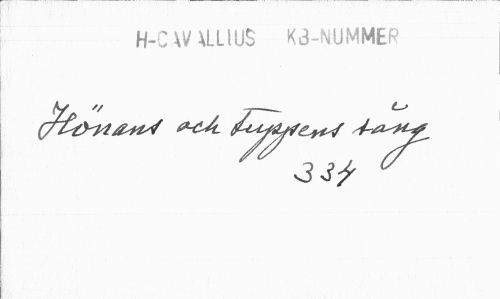 H-CAVALLIUS KB-NUMMER
Hönans och tuppens sång
334